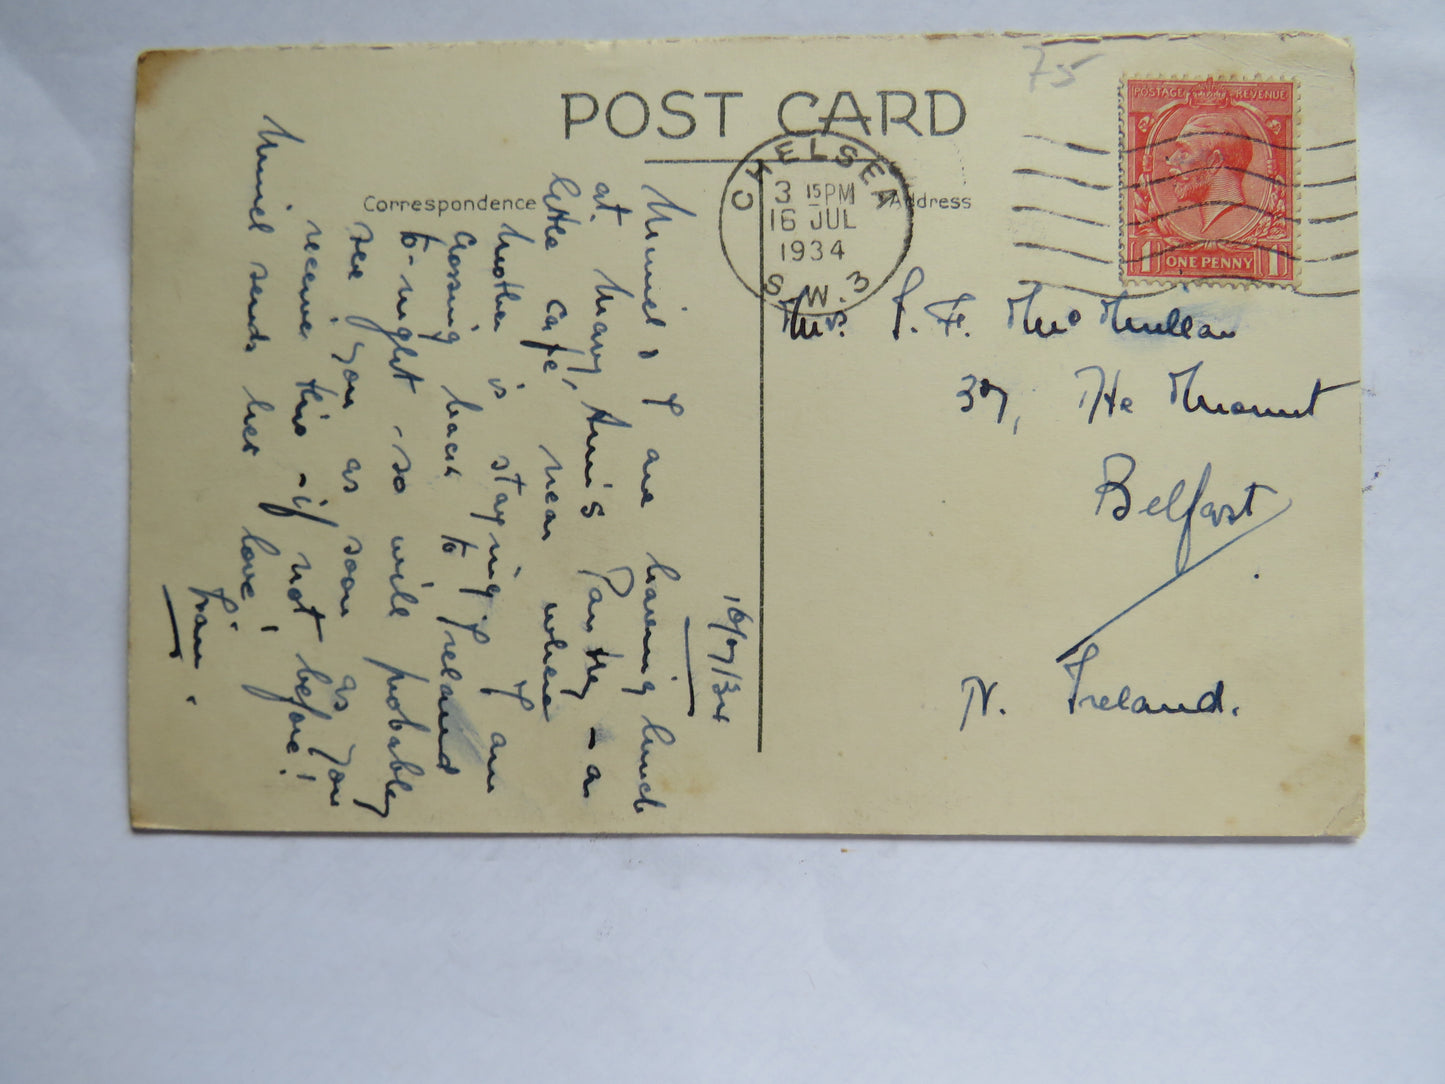 POST CARD
Correspondence
Address
75
POSTAGE REVENUE
1 ONE PENNY 1
CHELSEA
3 15 PM
16 JUL
1934
S.W.3
16/07/34
Muriel & I are having lunch
at Mary Ann's Pantry - a
little café near where
Mother is staying. I am
crossing back to Ireland
to-night - so will probably
see you as soon as you
receive this - if not before!
Muriel sends her love!
Mrs. F. Mc Mullan
37, The Mount
Belfast
N. Ireland.